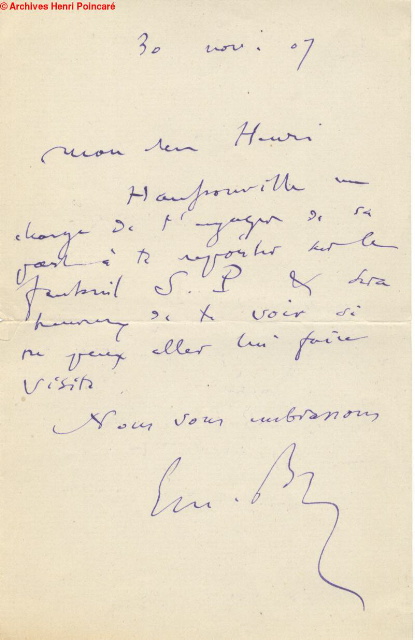 © Archives Henri Poincaré
30 nov. 07
Mon cher Henri
Haussonville me
charge de t'engager de sa
part à te reporter sur le
fauteuil S. P & sera
heureux de te voir si
tu peux aller lui faire
visite
Nous vous embrassons
Em. B